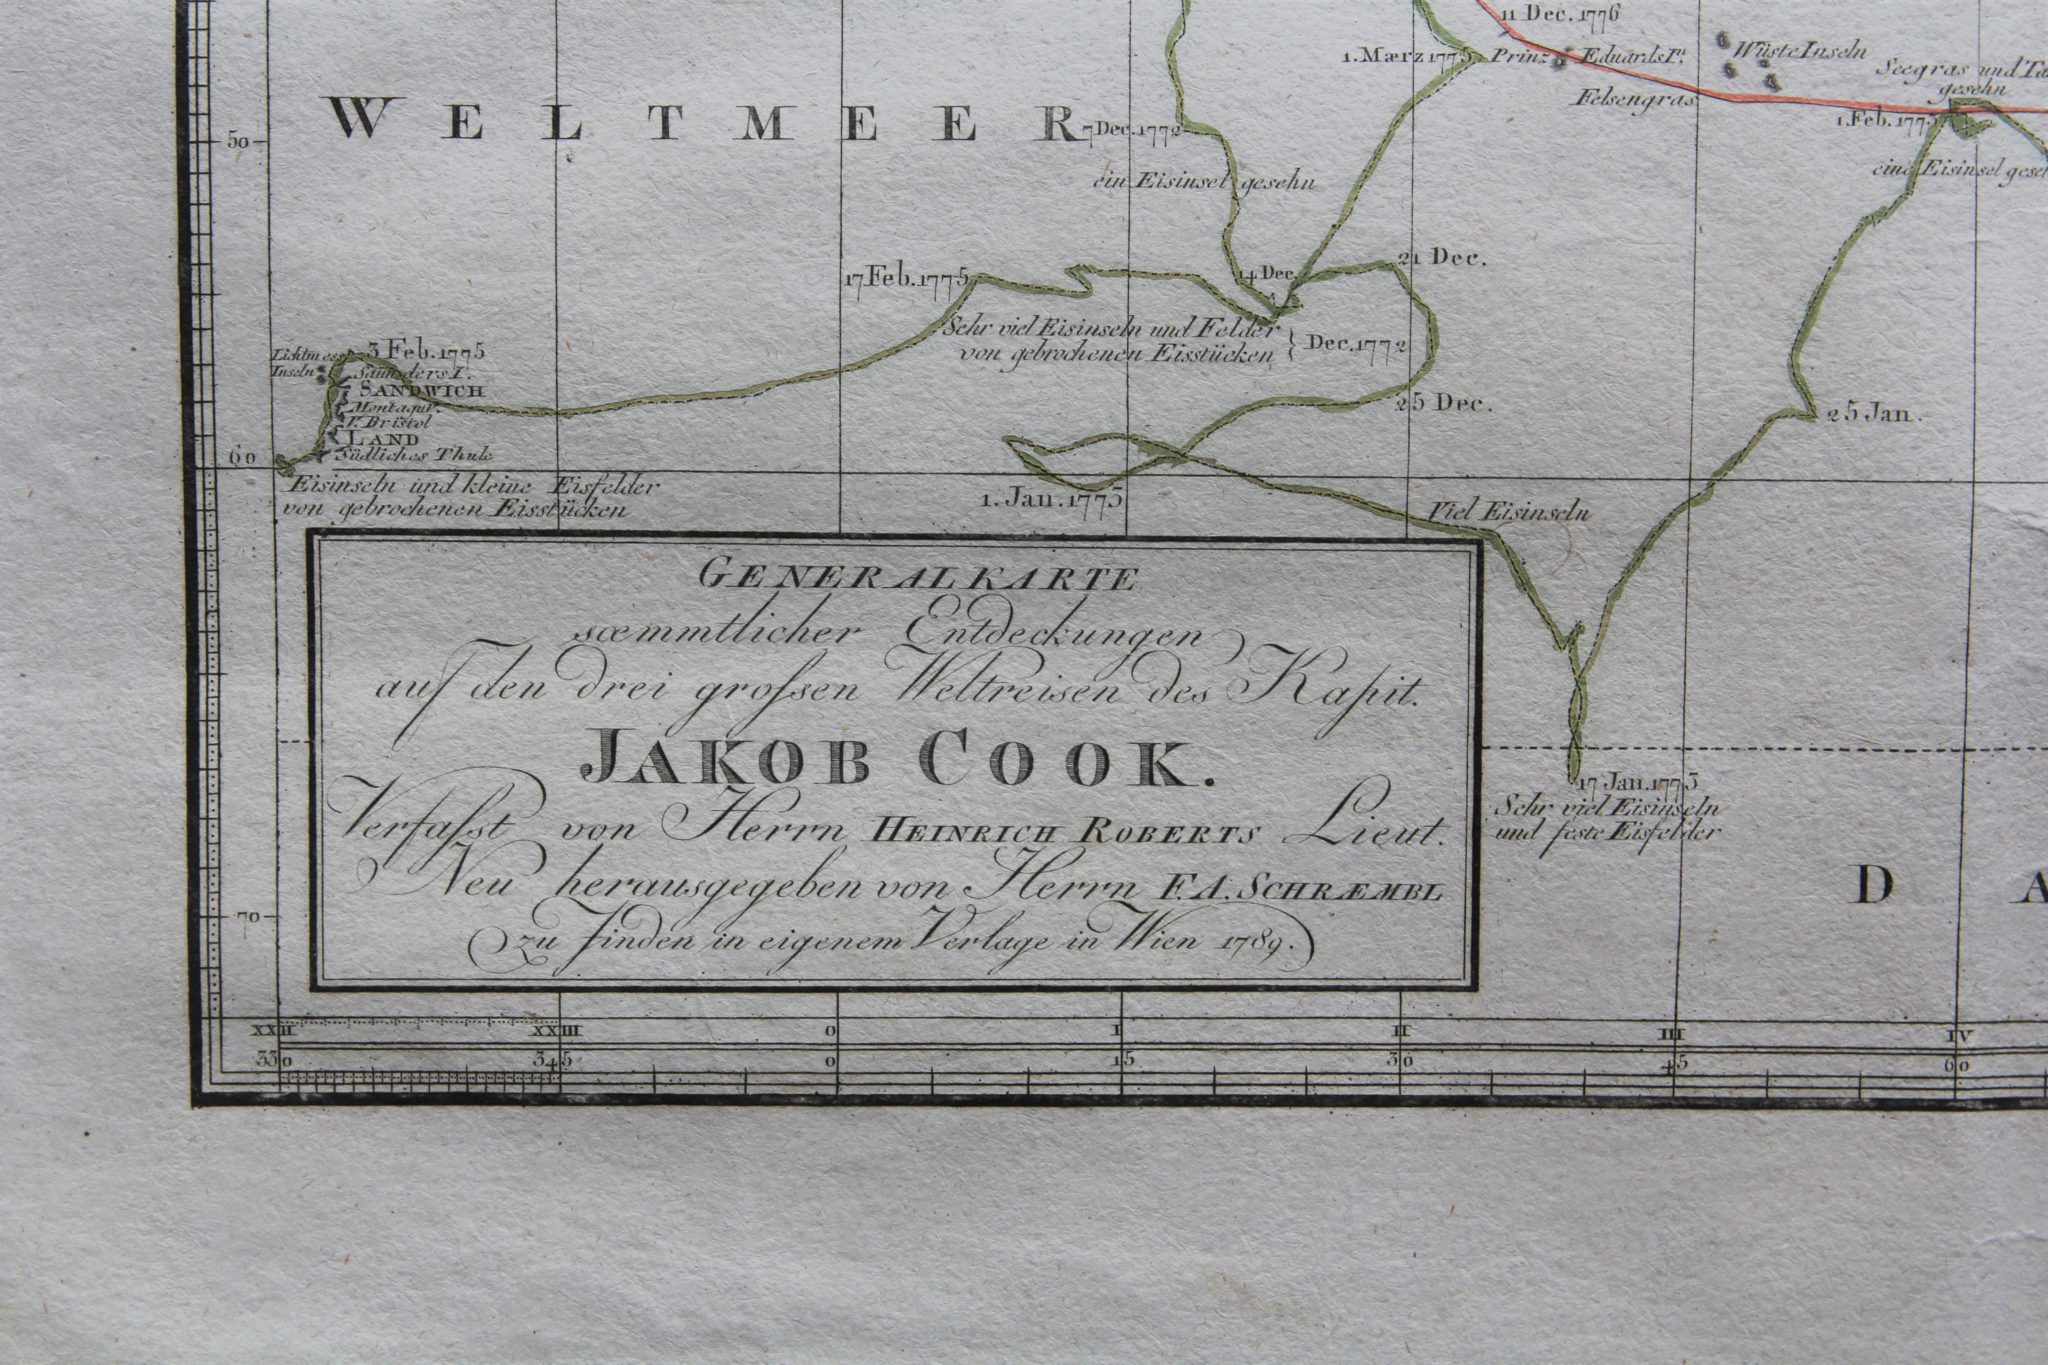 11 Dec. 1776
1. Mærz 1775
Prinz Eduards In.
Wüste Inseln
Seegras und
gesehn
Felsengras
1. Feb. 1773
WELTMEER
7 Dec. 1772
50
ein Eisinsel gesehn
eine Eisinsel
17 Feb. 1775
14 Dec.
21 Dec.
Sehr viel Eisinseln und Felder
von gebrochenen Eisstücken
Dec. 1772
Lichtmess
Inseln
3 Feb. 1775
Saunders I.
SANDWICH
Montagu
I. Bristol
LAND
Südliches Thule
25 Dec.
25 Jan.
60
Eisinseln und kleine Eisfelder
von gebrochenen Eisstücken
1. Jan. 1773
Viel Eisinseln
GENERALKARTE
sœmmtlicher Entdeckungen
auf den drei grossen Weltreisen des Kapit.
JAKOB COOK.
Verfasst von Herrn HEINRICH ROBERTS Lieut.
Neu herausgegeben von Herrn F. A. SCHRÆMBL
zu finden in eigenem Verlage in Wien 1789.
17 Jan. 1773
Sehr viel Eisinseln
und feste Eisfelder
D A
70
XXII XXIII 0 I II III IV
330 345 0 15 30 45 60